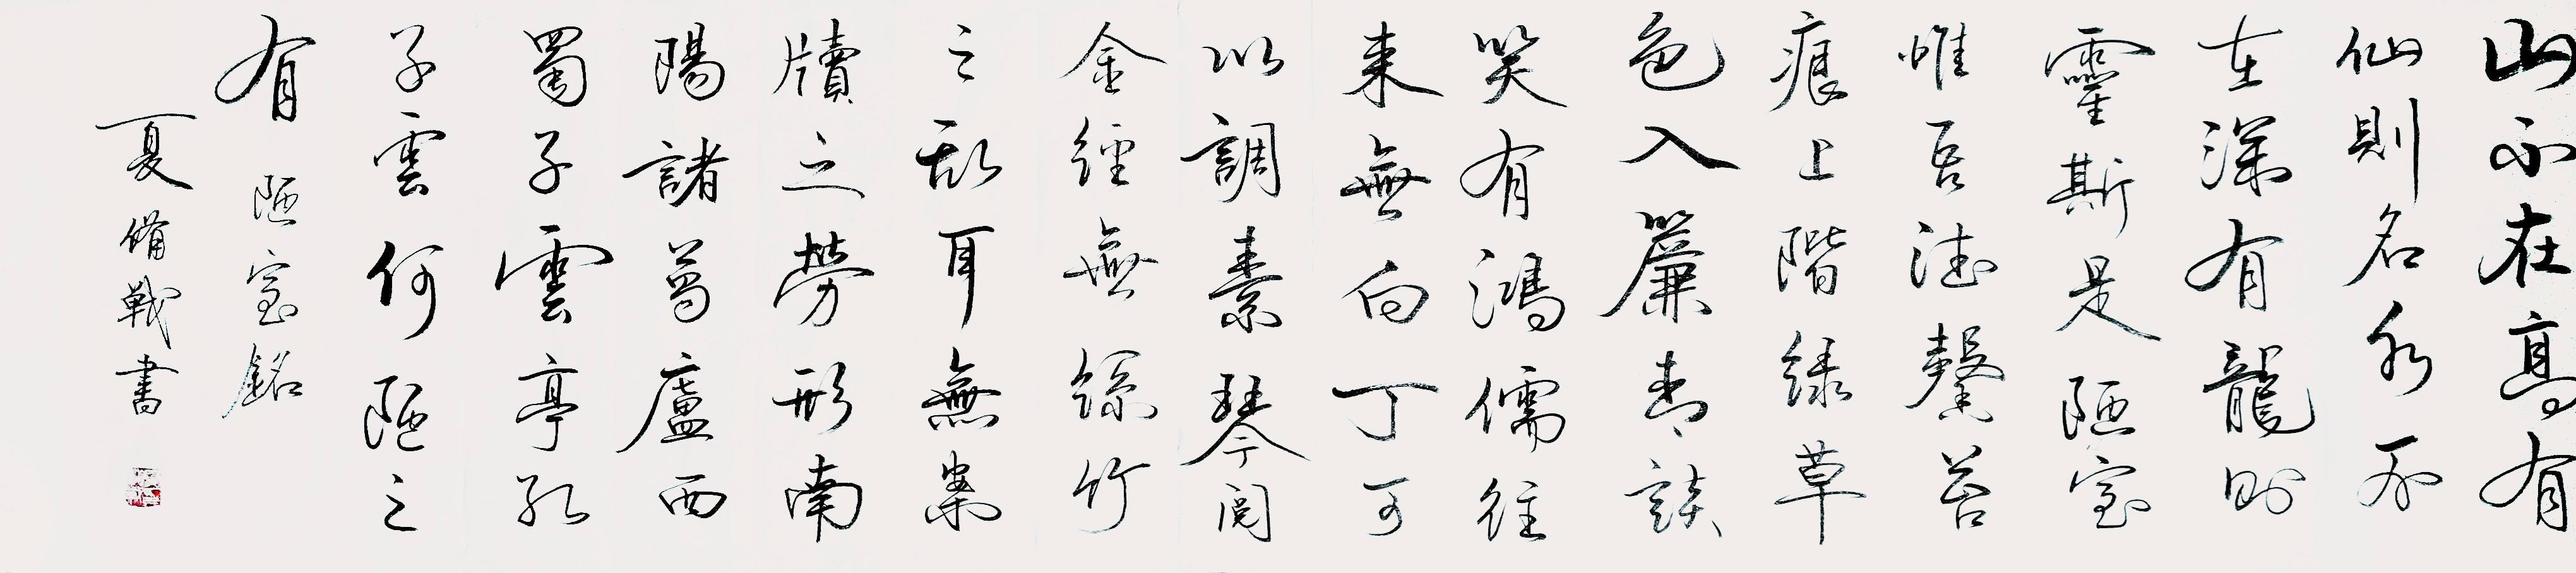 山不在高有
仙則名水不
在深有龍則
靈斯是陋室
惟吾德馨苔
痕上階綠草
色入簾青談
笑有鴻儒往
來無白丁可
以調素琴閱
金經無絲竹
之乱耳無案
牘之勞形南
陽諸葛廬西
蜀子雲亭孔
子雲何陋之
有 陋室銘
夏備戰書